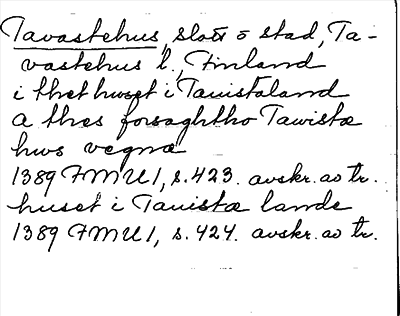 Tavastehus, slott o stad, Ta-
vastehus l., Finland
i thet huset i Tauistaland
a thes forsaghtho Tawistæ
hws vegnæ
1389 FMU I, s. 423. avskr. av tr.
huset i Tauistæ lande
1389 FMU I, s. 424. avskr. av tr.